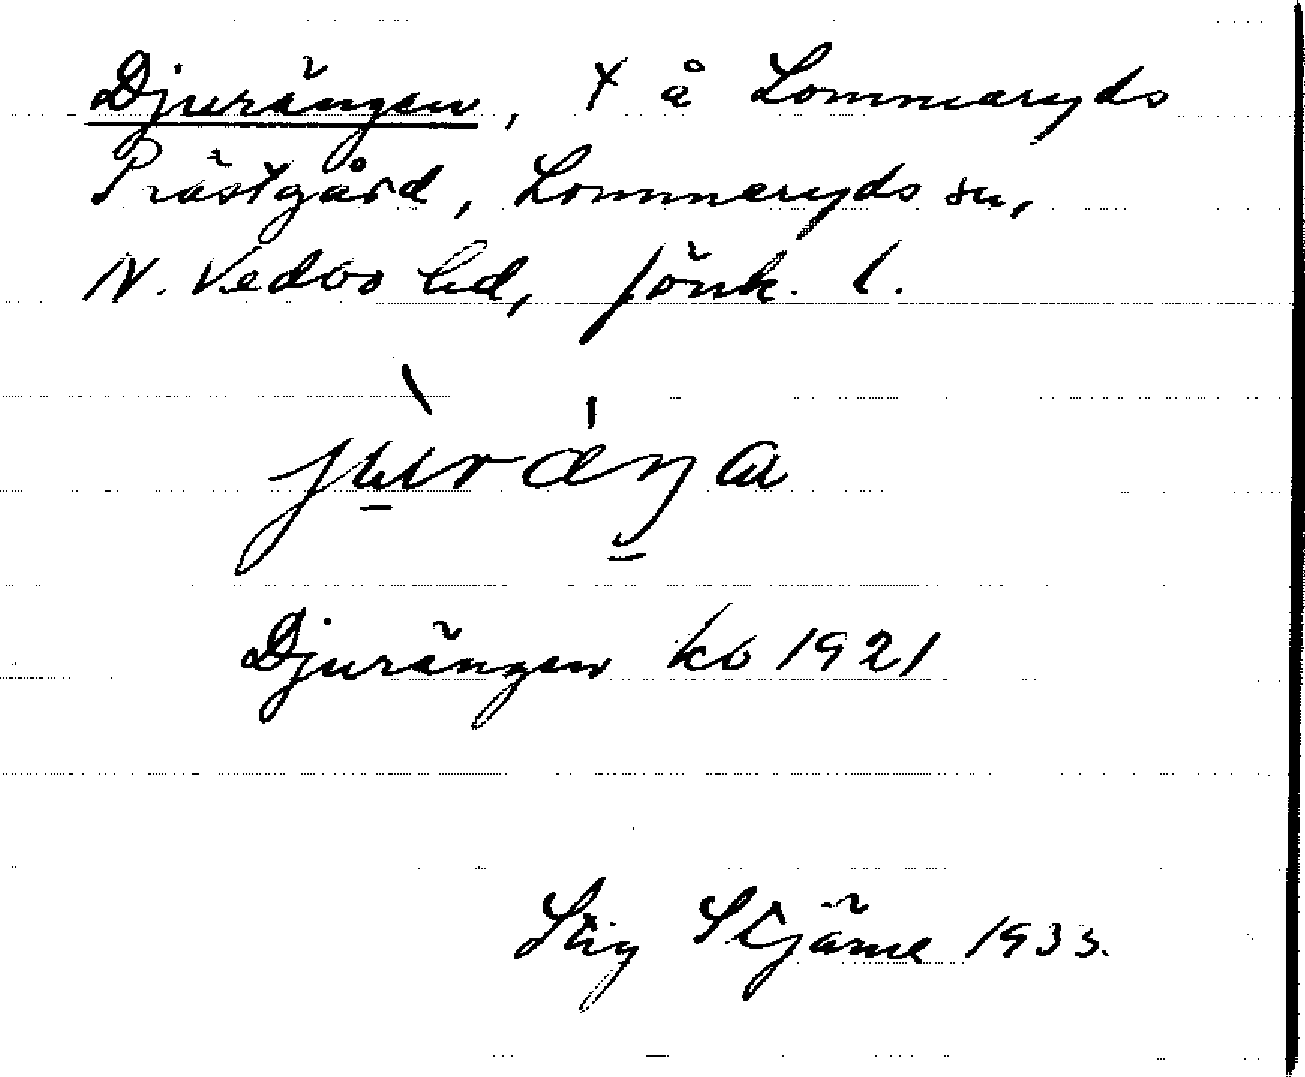 Djurängen, + å Lommaryds
Prästgård, Lommaryds sn,
N. Vedbo hd, Jönk. l.
jùráŋa
Djurängen kb 1921
Stig Stjärne 1933.